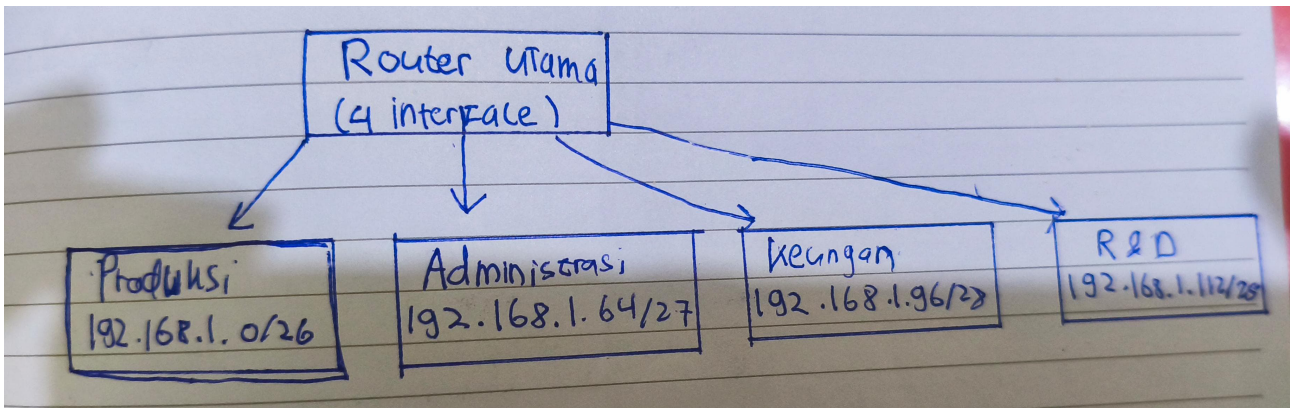 Router Utama
(4 interface)
Produksi
192.168.1.0/26
Administrasi
192.168.1.64/27
Keungan
192.168.1.96/28
R&D
192.168.1.112/28